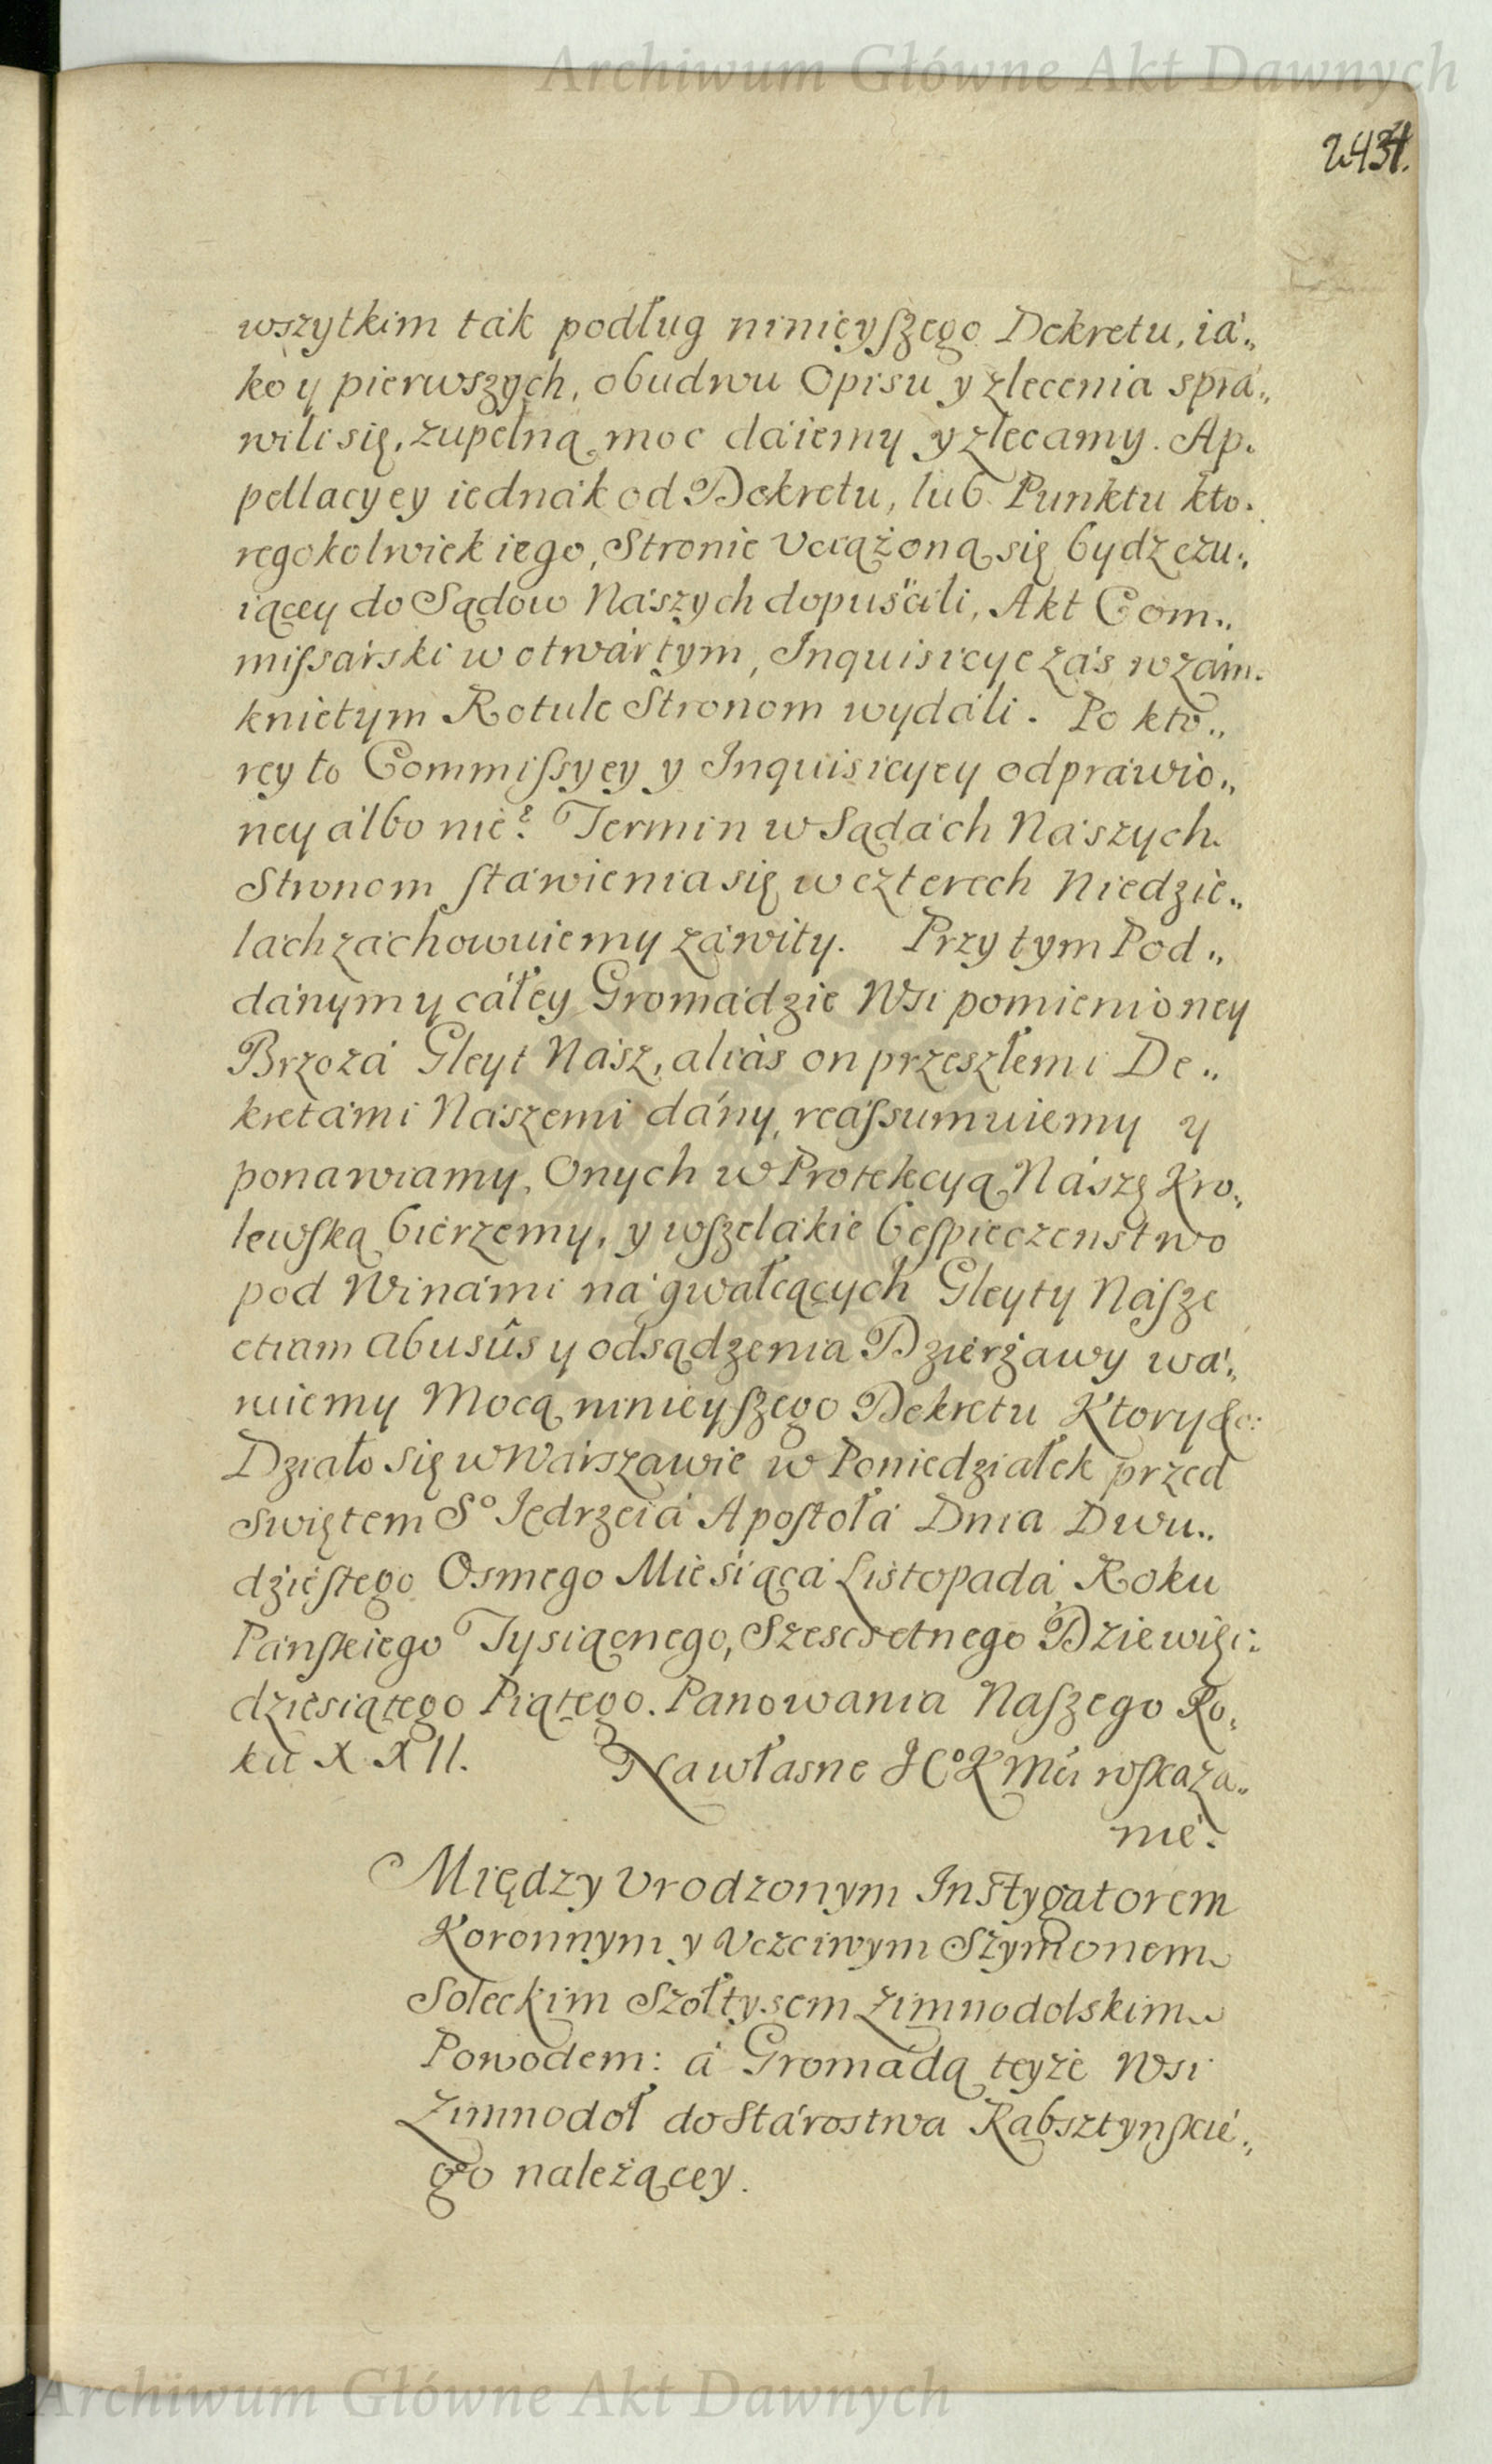 Archiwum Główne Akt Dawnych
2434.
wszytkim ták podług ninieyszego Dekretu, iá„
ko y pierwszych, obudwu Opisu y zlecenia sprá„
wili się, zupełną moc dáiemy y zlecamy. Ap„
pellacyey iednák od Dekretu, lub Punktu kto„
regokolwiek iego, Stronie Uciążoną się bydz czu„
iącey do Sądow Nászych dopuścili, Akt Com„
missárski w otwártym, Inquisicye zás w zám„
knietym Rotule Stronom wydáli. Po kto„
rey to Commissyey y Inquisicyey odpráwio„
ney álbo nie? Termin w Sądách Nászych
Stronom stáwienia się w czterech Niedzie„
lach záchowuiemy záwity. Przy tym Pod„
dánym y cáłey Gromádzie Wsi pomienioney
Brzozá Gleyt Nász, aliàs on przeszłemi De„
kretámi Nászemi dány, reássumuiemy y
ponawiamy, Onych w Protekcyą Nászę Kro„
lewską bierzemy, y wszelákie bespieczenstwo
pod Winámi ná gwałcących Gleyty Násze
etiam abusûs y odsądzenia Dzierżawy wá„
ruiemy Mocą ninieyszego Dekretu Ktory &c:
Działo się w Wárszawie w Poniedziałek przed
Swiętem Sº Jędrzeiá Apostołá Dnia Dwu„
dziestego Osmego Miesiącá Listopadá Roku
Páńskiego Tysiącnego, Szescsetnego Dziewięć„
dziesiątego Piątego. Panowania Naszego Ro„
ku XXII. Na własne JCºKMći wskaza„
nie.
Między Urodzonym Instygatorem
Koronnym y Uczciwym Szymonem
Soleckim Szołtysem Zimnodolskim
Powodem: á Gromadą teyże Wsi
Zimnodoł do Stárostwa Rabsztynskie„
go należącey.
Archiwum Główne Akt Dawnych